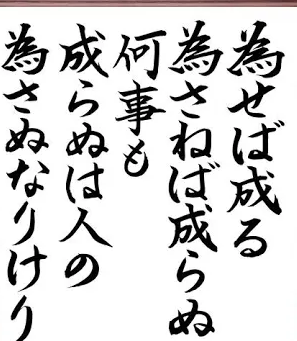 為せば成る
為さねば成らぬ
何事も
成らぬは人の
為さぬなりけり